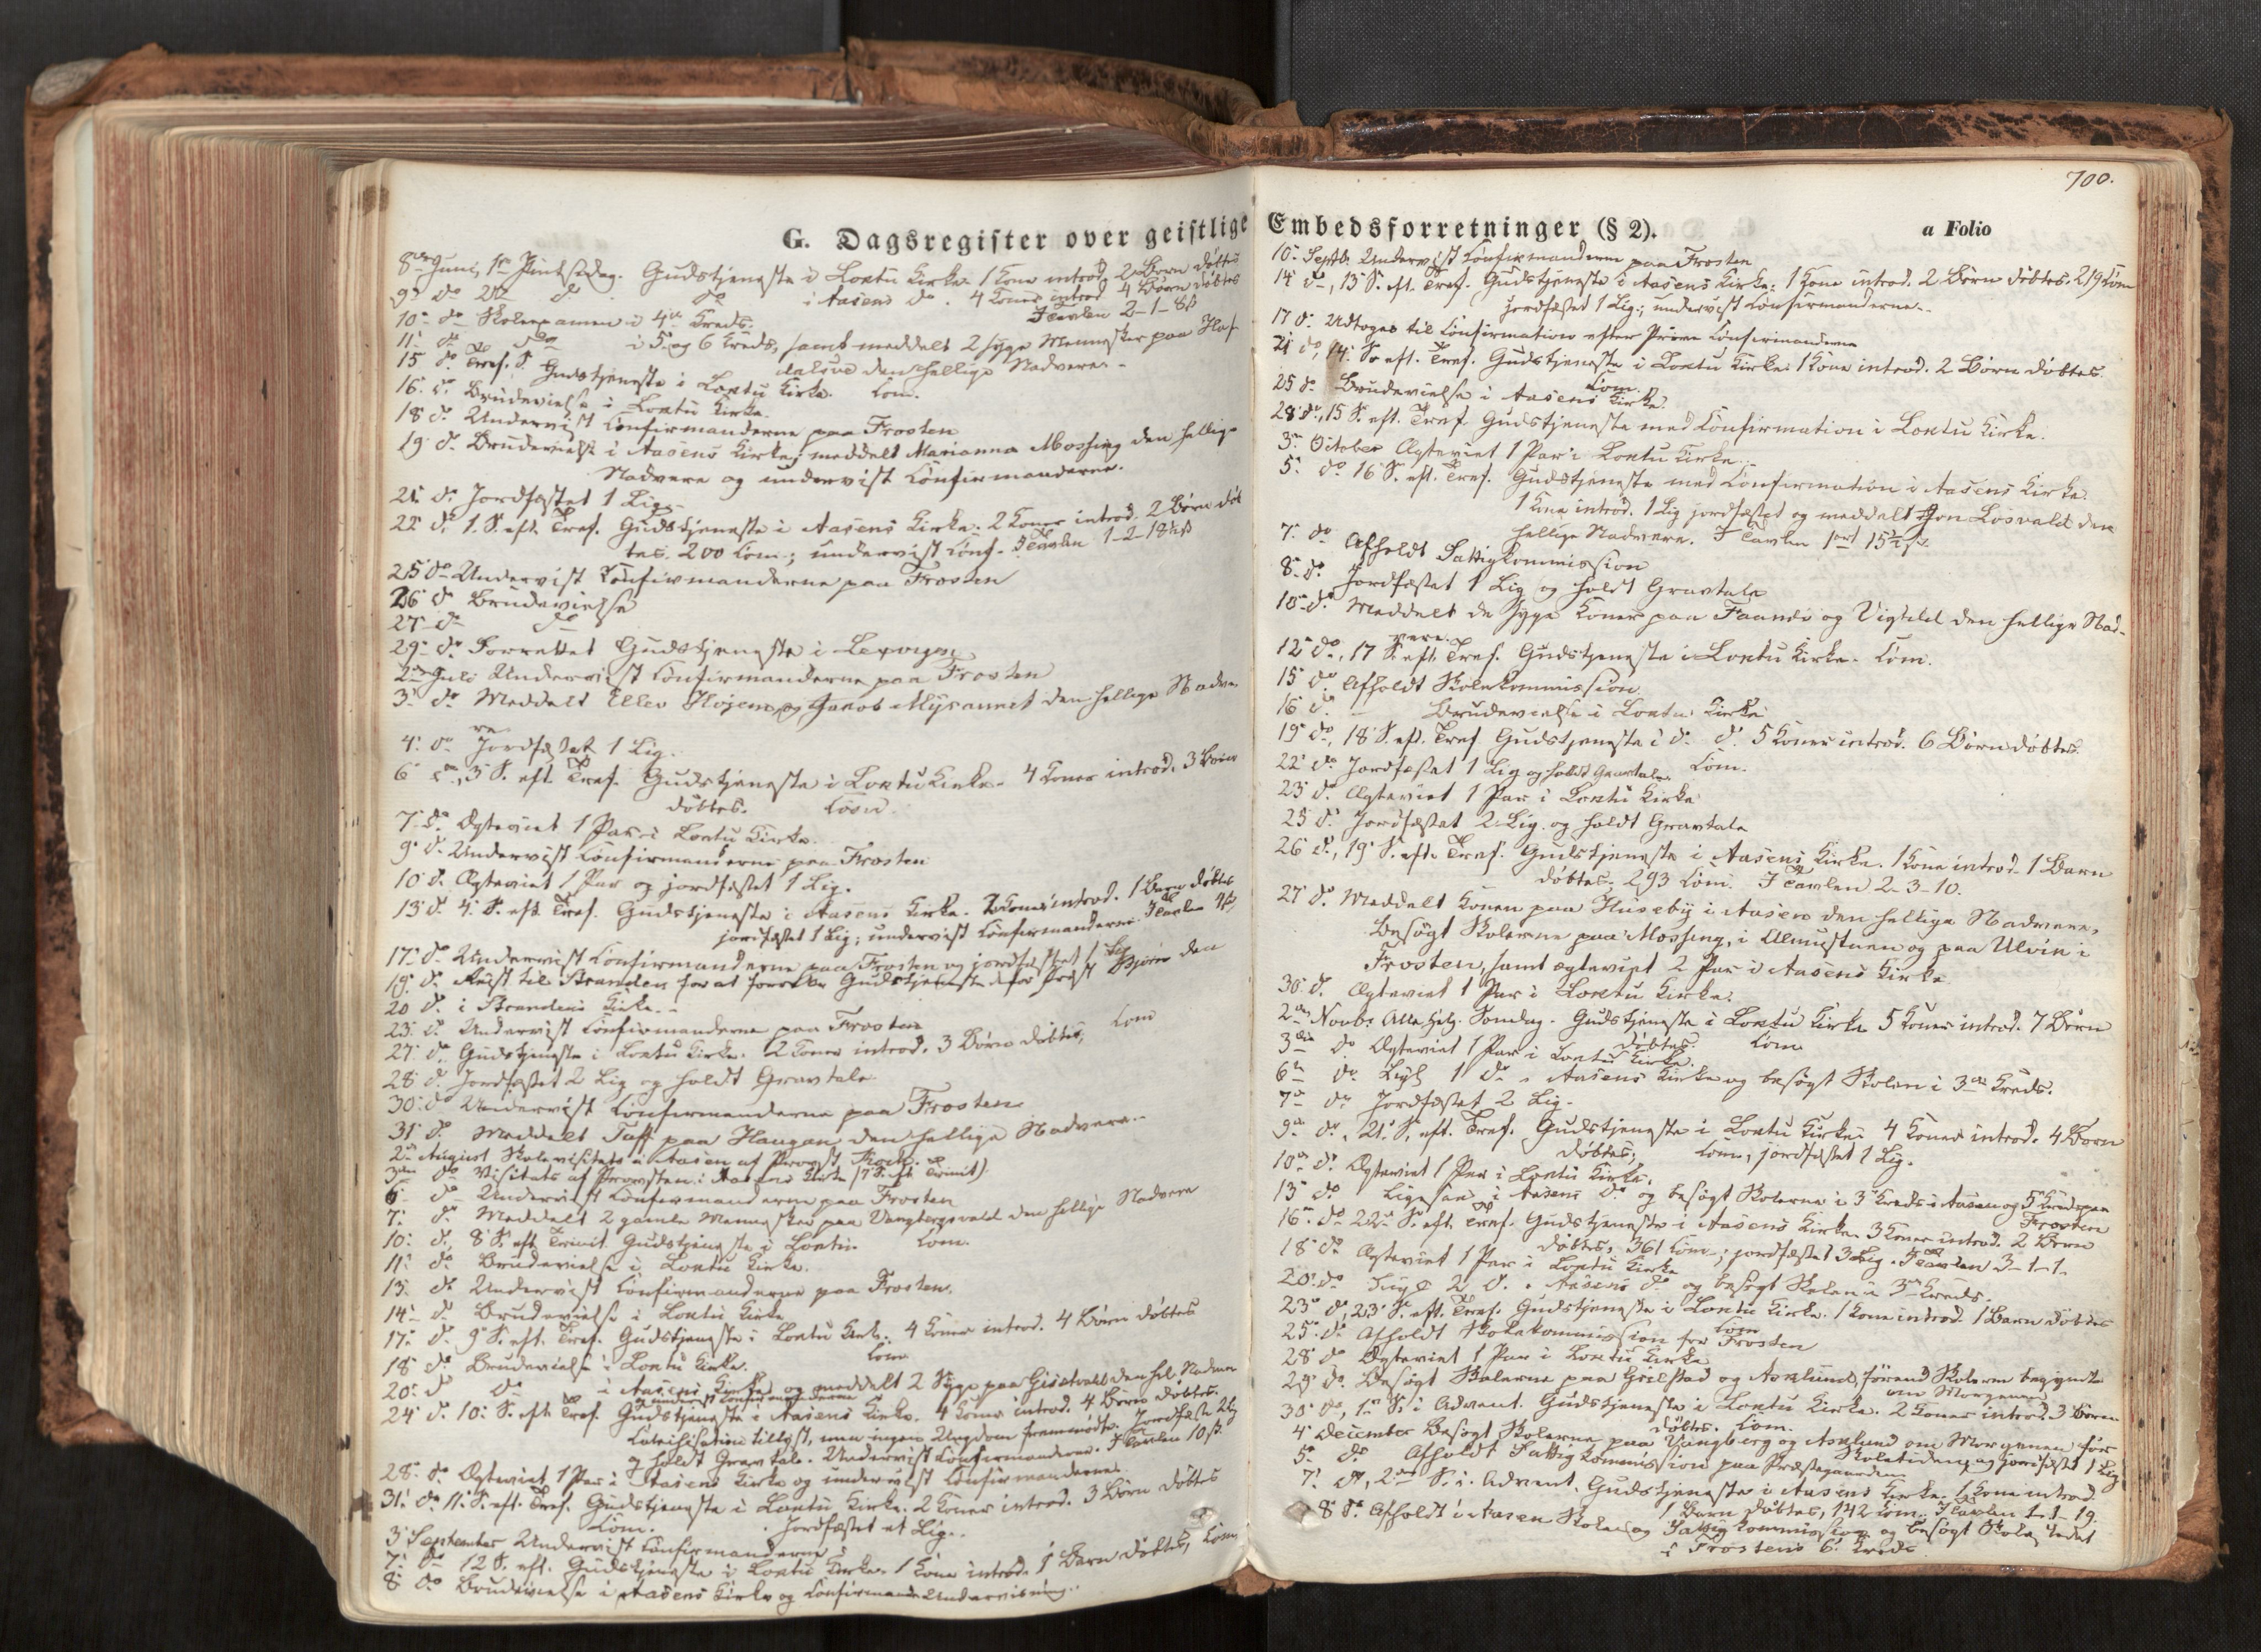 G. Dagsregister over geistlige
8de Juni, 1ste Pintsedag. Gudstjeneste i Loxtu Kirke 1 Kone introd. 2 Børn døbtes
9de do 2den do do i Aasens do. 4 Koner introd. 4 Børn døbtes
I Tavlen 2-1-8ß
10de do Skoleexamen i 4de Kreds.
11te do do i 5 og 6 Kreds, samt meddelt 2 syge Mennesker paa
den hellige Nadvere.
15 do Tref. S. Gudstjeneste i Loxtu Kirke. Com.
16 do Brudevielse i Loxtu Kirke.
18 do Undervist Confirmanderne paa Frosten
19 do Brudevielse i Aasens Kirke; meddelt Marianna Mossing den hellige
Nadvere og undervist Confirmanderne.
21 do Jordfæstet 1 Lig.
22 do 1. S. eft. Tref. Gudstjeneste i Aasens Kirke. 2 Koner introd. 2 Børn døb
tes. 200 Com.; undervist Conf. I Tavlen 1-2-18½ß
25 do Undervist Confirmanderne paa Frosten
26 do Brudevielse
27 do do
29 do Forrettet Gudstjeneste i Lexvigen
2den Juli Undervist Confirmanderne paa Frosten
3 do Meddelt Ellev Højem og Jakob Myraunet den hellige Nadve
re
4 do Jordfæstet 1 Lig.
6 do, 3 S. eft. Tref. Gudstjeneste i Loxtu Kirke. 4 Koner introd. 3 Børn
døbtes. Com.
7 do Ægteviet 1 Par i Loxtu Kirke.
9 do Undervist Confirmanderne paa Frosten
10 do Ægteviet 1 Par og jordfæstet 1 Lig.
13 do 4. S. eft. Tref. Gudstjeneste i Aasens Kirke. 2 Koner introd. 1 Barn døbtes
jordfæstet 1 Lig; undervist Confirmanderne. I Tavlen
17 do Undervist Confirmanderne paa Frosten og jordfæstet 1 Lig
19 do Reist til Stranden for at forrette Gudstjeneste for Præst Bjørn den
20 do i Strandens Kirke.
23 do Undervist Confirmanderne paa Frosten
27 do Gudstjeneste i Loxtu Kirke. 2 Koner introd. 3 Børn døbtes, Com
28 do Jordfæstet 2 Lig og holdt Gravtale
30 do Undervist Confirmanderne paa Frosten
31 do Meddelt Taff paa Haugan den hellige Nadvere.
2den August Skolevisitats i Aasen af Provst
3die do Visitats af Provsten i Aasens Kirke (7 S. eft. Trinit)
6 do Undervist Confirmanderne paa Frosten
7 do Meddelt 2 gamle Mennesker paa Vangbergsvald den hellige Nadvere
10 do, 8 S. eft. Trinit. Gudstjeneste i Loxtu. Com.
11 do Brudevielse i Loxtu Kirke.
13 do Undervist Confirmanderne paa Frosten.
14 do Brudevielse i Loxtu Kirke
17 do 9 S. eft. Tref. Gudstjeneste i Loxtu Kirke. 4 Koner introd. 4 Børn døbtes
Com
18 do Brudevielse i Loxtu Kirke.
20 do do i Aasens Kirke og meddelt 2 Syge paa den hel. Nadvere
og undervist Confirmanderne
24 do 10 S. eft. Tref. Gudstjeneste i Aasens Kirke. 4 Koner introd. 4 Børn døbtes.
Catechisation tillyst, men ingen Ungdom fremmødte. Jordfæstet 2 Lig
og holdt Gravtale. Undervist Confirmanderne. I Tavlen 10 ß.
28 do Ægteviet 1 Par i Aasens Kirke og undervist Confirmanderne.
31 do 11 S. eft. Tref. Gudstjeneste i Loxtu Kirke. 2 Koner introd. 3 Børn døbtes
Com. Jordfæstet et Lig.
3 September Undervist Confirmanderne
7 do 12 S. eft. Gudstjeneste i Loxtu Kirke. 1 Kone introd. 1 Barn døbtes, Com
8 do Brudevielse i Aasens Kirke og Confirmand Undervisning.
700.
Embedsforretninger (§ 2). a Folio
10 Septb. Undervist Confirmanderne paa Frosten
14 do, 13 S. eft. Tref. Gudstjeneste i Aasens Kirke: 1 Kone introd. 2 Børn døbtes. 219 Com
Jordfæstet 1 Lig; undervist Confirmanderne.
17 do Udtoges til Confirmation efter Prøve Confirmanderne
21 do, 14 S. eft. Tref. Gudstjeneste i Loxtu Kirke 1 Kone introd. 2 Børn døbtes.
Com.
25 do Brudevielse i Aasens Kirke.
28 do, 15 S. eft. Tref. Gudstjeneste med Confirmation i Loxtu Kirke.
3 October Ægteviet 1 Par i Loxtu Kirke.
5 do 16 S. eft. Tref. Gudstjeneste med Confirmation i Aasens Kirke
1 Kone introd. 1 Lig jordfæstet og meddelt Jon Løsvald den
hellige Nadvere. I Tavlen 1 ort 15½ ß
7 do Afholdt Fattigkommission
8 do Jordfæstet 1 Lig og holdt Gravtale
10 do Meddelt de syge Koner paa Faanes og Vigtell den hellige Nad-
vere.
12 do, 17 S. eft. Tref. Gudstjeneste i Loxtu Kirke. Com.
15 do Afholdt Skolekommission.
16 do Brudevielse i Loxtu Kirke
19 do, 18 S. eft. Tref. Gudstjeneste i do do 5 Koner introd. 6 Børn døbtes.
Com.
22 do Jordfæstet 1 Lig og holdt Gravtale.
23 do Ægteviet 1 Par i Loxtu Kirke
25 do Jordfæstet 2 Lig og holdt Gravtale
26 do, 19 S. eft. Tref. Gudstjeneste i Aasens Kirke. 1 Kone introd. 1 Barn
døbtes. 293 Com. I Tavlen 2-3-10.
27 do Meddelt Konen paa Huseby i Aasen den hellige Nadvere,
Besøgt Skolerne paa Mossing, i Almustuen og paa Ulvin i
Frosten, samt ægteviet 2 Par i Aasens Kirke
30 do Ægteviet 1 Par i Loxtu Kirke.
2den Novbr. Alle Helg. Søndag. Gudstjeneste i Loxtu Kirke 5 Koner introd. 7 Børn
døbtes. Com
3die do Ægteviet 1 Par i Loxtu Kirke.
6te do Lige 1 do i Aasens Kirke og besøgt Skolen i 3die Kreds.
7de do Jordfæstet 2 Lig.
9de do, 21 S. eft. Tref. Gudstjeneste i Loxtu Kirke 4 Koner introd. 4 Børn
døbtes; Com; jordfæstet 1 Lig.
10 do Ægteviet 1 Par i Loxtu Kirke.
13 do Ligesaa i Aasens do og besøgt Skolerne i 3 Kreds i Aasen og 5 Kreds paa
Frosten
16 do 22 S. eft. Tref. Gudstjeneste i Aasens Kirke 3 Koner introd. 2 Børn
døbtes, 361 Com; jordfæstet 3 Lig. I Tavlen 3-1-1.
18 do Ægteviet 1 Par i Loxtu Kirke
20 do Lige 2 do i Aasens do og besøgt Skolen i 3 Kreds.
23 do, 23 S. eft. Tref. Gudstjeneste i Loxtu Kirke. 1 Kone introd. 1 Barn døbtes
Com
25 do Afholdt Skolekommission for Frosten
28 do Ægteviet 1 Par i Loxtu Kirke
29 do Besøgt Skolerne paa Grelstad og Asklund, førend Skolerne begyndte
om Morgenen
30 do, 1 S. i Advent. Gudstjeneste i Loxtu Kirke. 2 Koner introd. 3 Børn
døbtes. Com.
4 December Besøgt Skolerne paa Vangberg og Asklund om Morgenen før
Skoletiden, og jordfæstet 1 Lig
5 do Afholdt Fattigkommission paa Præstegaarden
7 do, 2den S. i Advent. Gudstjeneste i Aasens Kirke. 1 Kone introd.
1 Barn døbtes, 142 Com. I Tavlen 1-1-19.
8 do Afholdt i Aasen Skole og Fattigkommission og besøgt Skoleholdet
i Frostens 6 Kreds